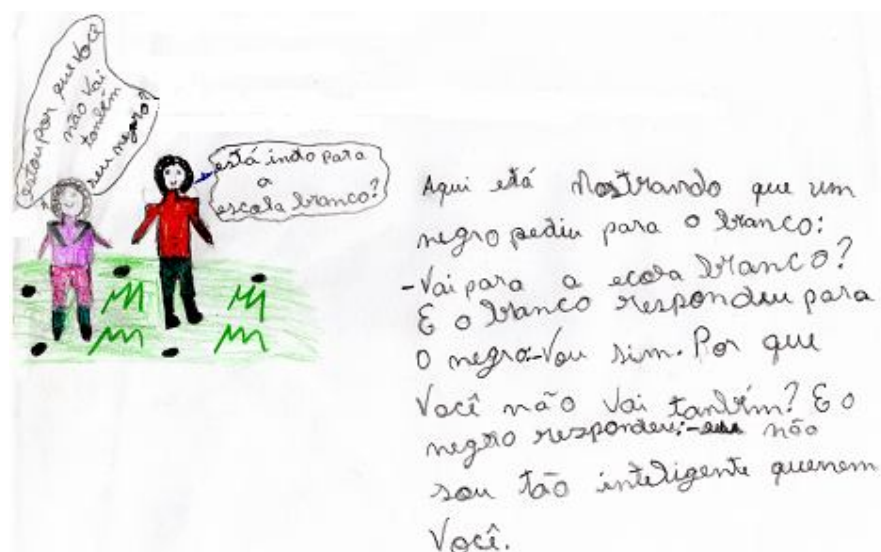 estou por que você
não vai
também
seu negro?
está indo para
a
escola branco?
Aqui está Mostrando que um
negro pediu para o branco:
-Vai para a ecola branco?
E o branco respondeu para
o negro:-Vou sim. Por que
Você não vai também? E o
negro respondeu:- não
sou tão inteligente quenem
Você.